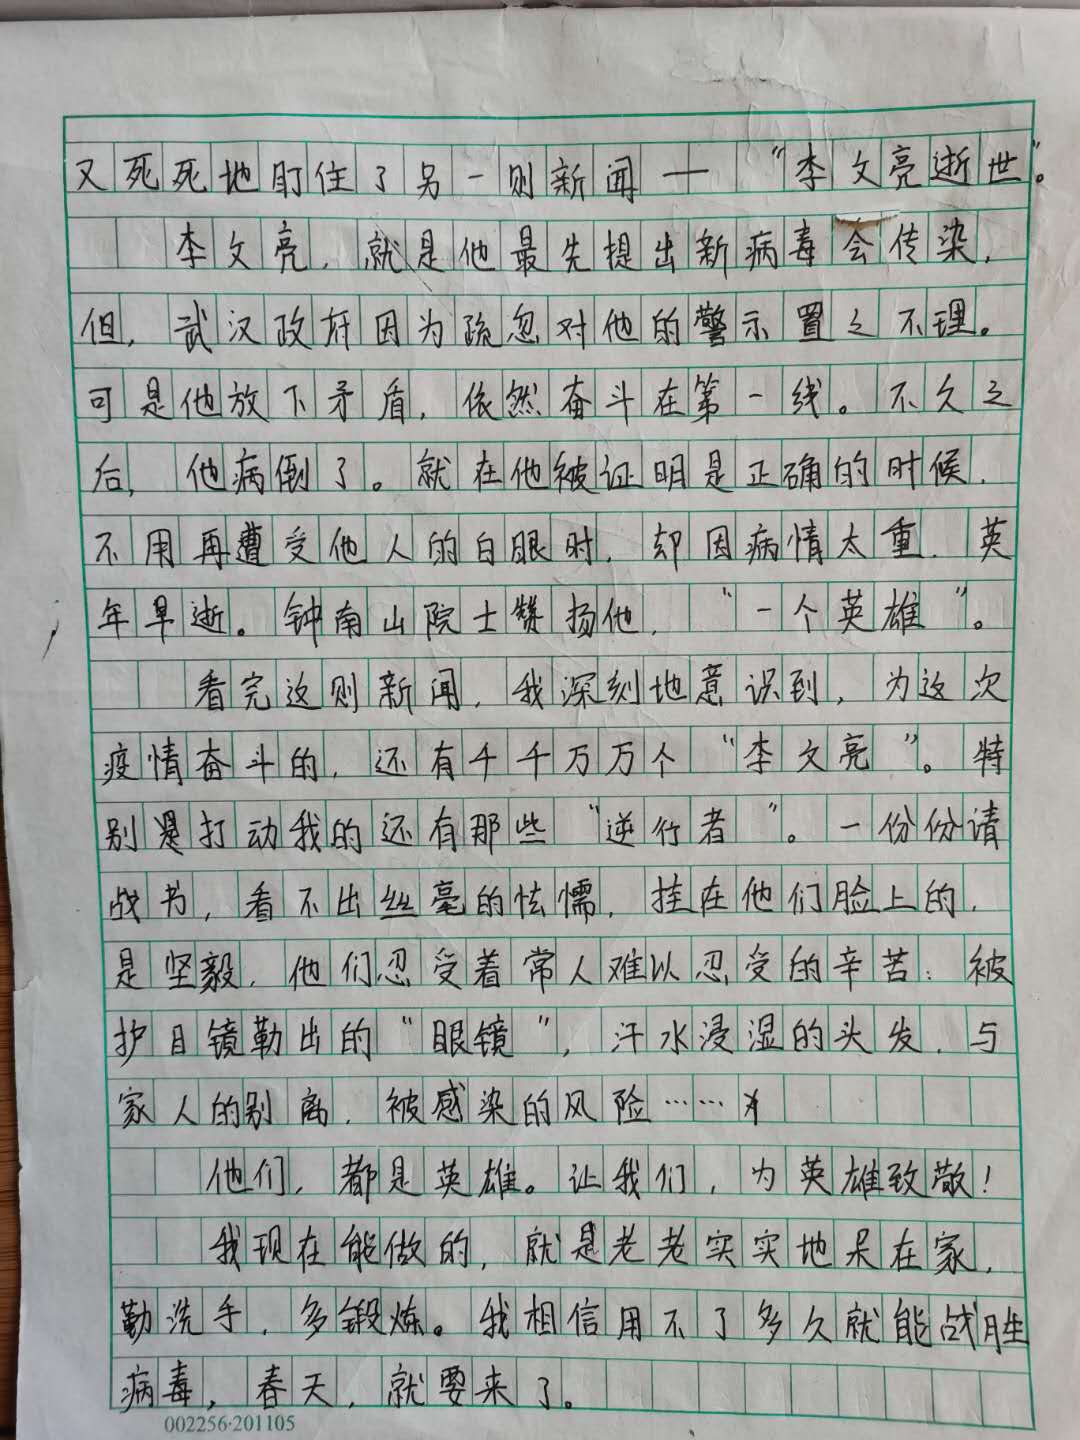 又死死地盯住了另一则新闻——“李文亮逝世”。
李文亮，就是他最先提出新病毒会传染，
但，武汉政府因为疏忽对他的警示置之不理。
可是他放下矛盾，依然奋斗在第一线。不久之
后，他病倒了。就在他被证明是正确的时候，
不用再遭受他人的白眼时，却因病情太重，英
年早逝。钟南山院士赞扬他，“一个英雄”。
看完这则新闻，我深刻地意识到，为这次
疫情奋斗的，还有千千万万个“李文亮”。特
别是打动我的还有那些“逆行者”。一份份请
战书，看不出丝毫的怯懦，挂在他们脸上的，
是坚毅，他们忍受着常人难以忍受的辛苦：被
护目镜勒出的“眼镜”，汗水浸湿的头发，与
家人的别离，被感染的风险……
他们，都是英雄。让我们，为英雄致敬！
我现在能做的，就是老老实实地呆在家，
勤洗手，多锻炼。我相信用不了多久就能战胜
病毒，春天，就要来了。
002256·201105